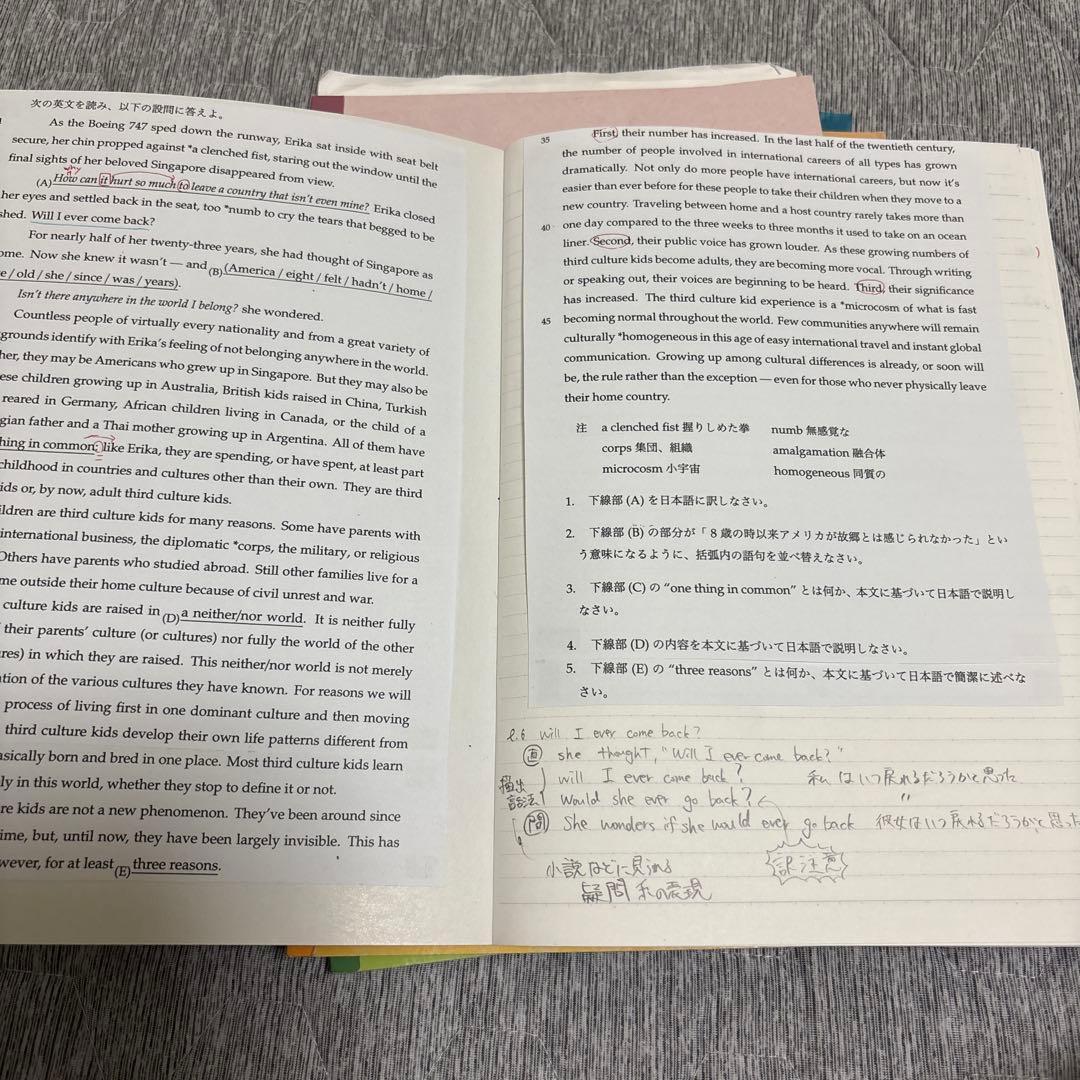 次の英文を読み、以下の設問に答えよ。
As the Boeing 747 sped down the runway, Erika sat inside with seat belt
secure, her chin propped against *a clenched fist, staring out the window until the
final sights of her beloved Singapore disappeared from view.
(A) How can it hurt so much to leave a country that isn't even mine? Erika closed
her eyes and settled back in the seat, too *numb to cry the tears that begged to be
shed. Will I ever come back?
For nearly half of her twenty-three years, she had thought of Singapore as
ome. Now she knew it wasn't — and (B) (America / eight / felt / hadn't / home /
e / old / she / since / was / years).
Isn't there anywhere in the world I belong? she wondered.
Countless people of virtually every nationality and from a great variety of
grounds identify with Erika's feeling of not belonging anywhere in the world.
her, they may be Americans who grew up in Singapore. But they may also be
ese children growing up in Australia, British kids raised in China, Turkish
reared in Germany, African children living in Canada, or the child of a
gian father and a Thai mother growing up in Argentina. All of them have
hing in common: like Erika, they are spending, or have spent, at least part
childhood in countries and cultures other than their own. They are third
ids or, by now, adult third culture kids.
ildren are third culture kids for many reasons. Some have parents with
international business, the diplomatic *corps, the military, or religious
Others have parents who studied abroad. Still other families live for a
me outside their home culture because of civil unrest and war.
culture kids are raised in (D) a neither/nor world. It is neither fully
their parents' culture (or cultures) nor fully the world of the other
res) in which they are raised. This neither/nor world is not merely
tion of the various cultures they have known. For reasons we will
process of living first in one dominant culture and then moving
third culture kids develop their own life patterns different from
asically born and bred in one place. Most third culture kids learn
ly in this world, whether they stop to define it or not.
re kids are not a new phenomenon. They've been around since
ime, but, until now, they have been largely invisible. This has
wever, for at least (E) three reasons.
35 First, their number has increased. In the last half of the twentieth century,
the number of people involved in international careers of all types has grown
dramatically. Not only do more people have international careers, but now it's
easier than ever before for these people to take their children when they move to a
new country. Traveling between home and a host country rarely takes more than
40 one day compared to the three weeks to three months it used to take on an ocean
liner. Second, their public voice has grown louder. As these growing numbers of
third culture kids become adults, they are becoming more vocal. Through writing
or speaking out, their voices are beginning to be heard. Third, their significance
has increased. The third culture kid experience is a *microcosm of what is fast
45 becoming normal throughout the world. Few communities anywhere will remain
culturally *homogeneous in this age of easy international travel and instant global
communication. Growing up among cultural differences is already, or soon will
be, the rule rather than the exception — even for those who never physically leave
their home country.
注 a clenched fist 握りしめた拳 numb 無感覚な
corps 集団、組織 amalgamation 融合体
microcosm 小宇宙 homogeneous 同質の
1. 下線部 (A) を日本語に訳しなさい。
2. 下線部 (B) の部分が「8 歳の時以来アメリカが故郷とは感じられなかった」とい
う意味になるように、括弧内の語句を並べ替えなさい。
3. 下線部 (C) の "one thing in common" とは何か、本文に基づいて日本語で説明し
なさい。
4. 下線部 (D) の内容を本文に基づいて日本語で説明しなさい。
5. 下線部 (E) の "three reasons" とは何か、本文に基づいて日本語で簡潔に述べな
さい。
l.6 Will I ever come back?
直 she thought, "Will I ever come back?"
描出話法 will I ever come back? 私はいつ戻れるだろうかと思った
would she ever go back? 〃
間 She wonders if she would ever go back 彼女はいつ戻れるだろうかと思った
小説などに見られる 訳注意
疑問系の表現